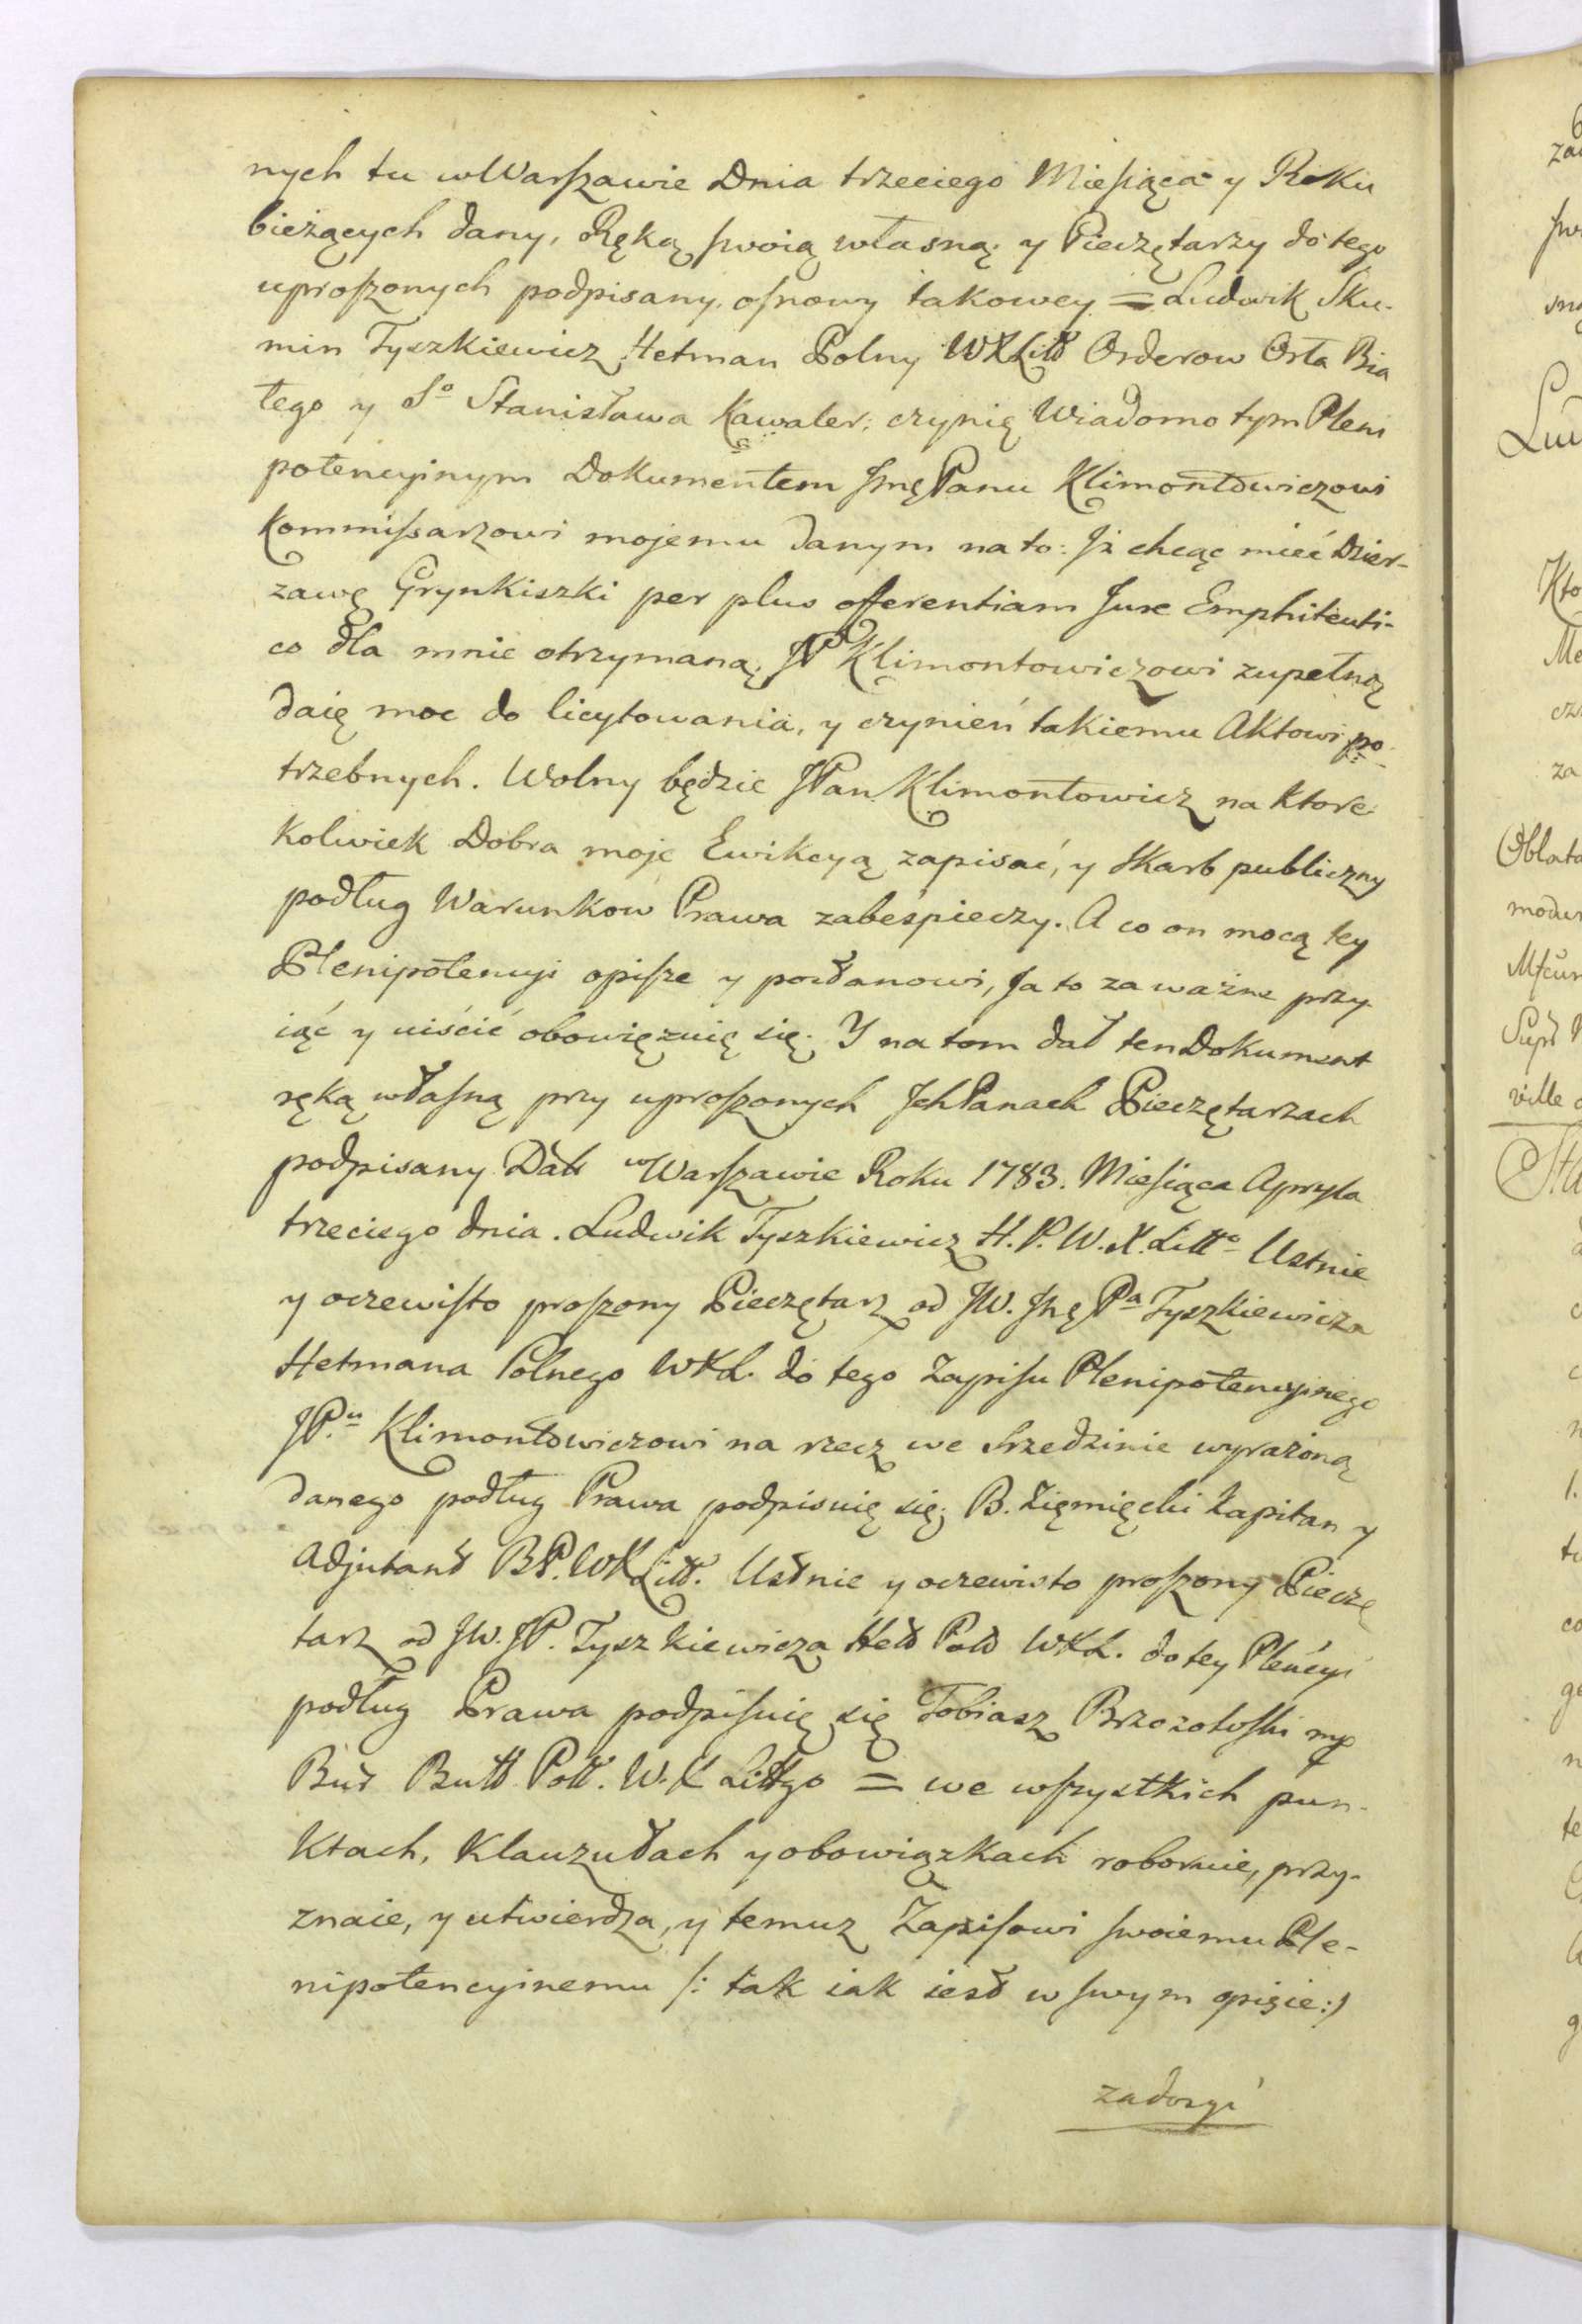 nych tu w Warszawie Dnia trzeciego Miesiąca y Roku
bieżących dany, Ręką swoią własną y Pieczętarzy do tego
uproszonych podpisany, osnowy takowey = Ludwik Sku-
min Tyszkiewicz Hetman Polny WXLitt Orderow Orła Bia
łego y So Stanisława Kawaler, czynię Wiadomo tym Pleni
potencyjnym Dokumentem JmęPanu Klimontowiczowi
Kommissarzowi mojemu danym na to: Iż chcąc mieć Dzier-
zawę Grynkiszki per plus offerentiam Jure Emphiteuti-
co dla mnie otrzymaną, JP Klimontowiczowi zupełną
daię moc do licytowania, y czynień takiemu Aktowi po-
trzebnych. Wolny będzie JPan Klimontowicz na ktore
kolwiek Dobra moje Ewikcyą zapisać, y Skarb publiczny
podług Warunkow Prawa zabespieczy. A co on mocą tey
Plenipotencyi opisze y postanowi, Ja to za ważne przy
iąć y uiścić obowięzuię się. Y na tom dał ten Dokument
ręką własną przy uproszonych IchPanach Pieczętarzach
podpisany Datt w Warszawie Roku 1783. Miesiąca Apryla
trzeciego dnia. Ludwik Tyszkiewicz H. P. W. X. Litto Ustnie
y oczewisto proszony Pieczętarz od JW. Jmę Pa Tyszkiewicza
Hetmana Polnego WXL. do tego Zapisu Plenipotencyinego
JP.u Klimontowiczowi na rzecz we Srzedzinie wyrażoną
danego podług Prawa podpisuię się; B. Zięmięcki Kapitan y
Adjutant B.P.WXLitt. Ustnie y oczewisto proszony Pieczę
tarz od JW. JP. Tyszkiewicza Hett Pold WXL. do tey Pleńcyi
podług Prawa podpisuię się Tobiasz Brzozowski mp
Butt Poll. W. X Littgo = we wszystkich pun-
ktach, Klauzułach y obowiązkach roboruie, przy-
znaie, y utwierdza, y temuz Zapisowi swoiemu Ple-
nipotencyinemu /: tak iak iest w swym opisie:)
zadosyć